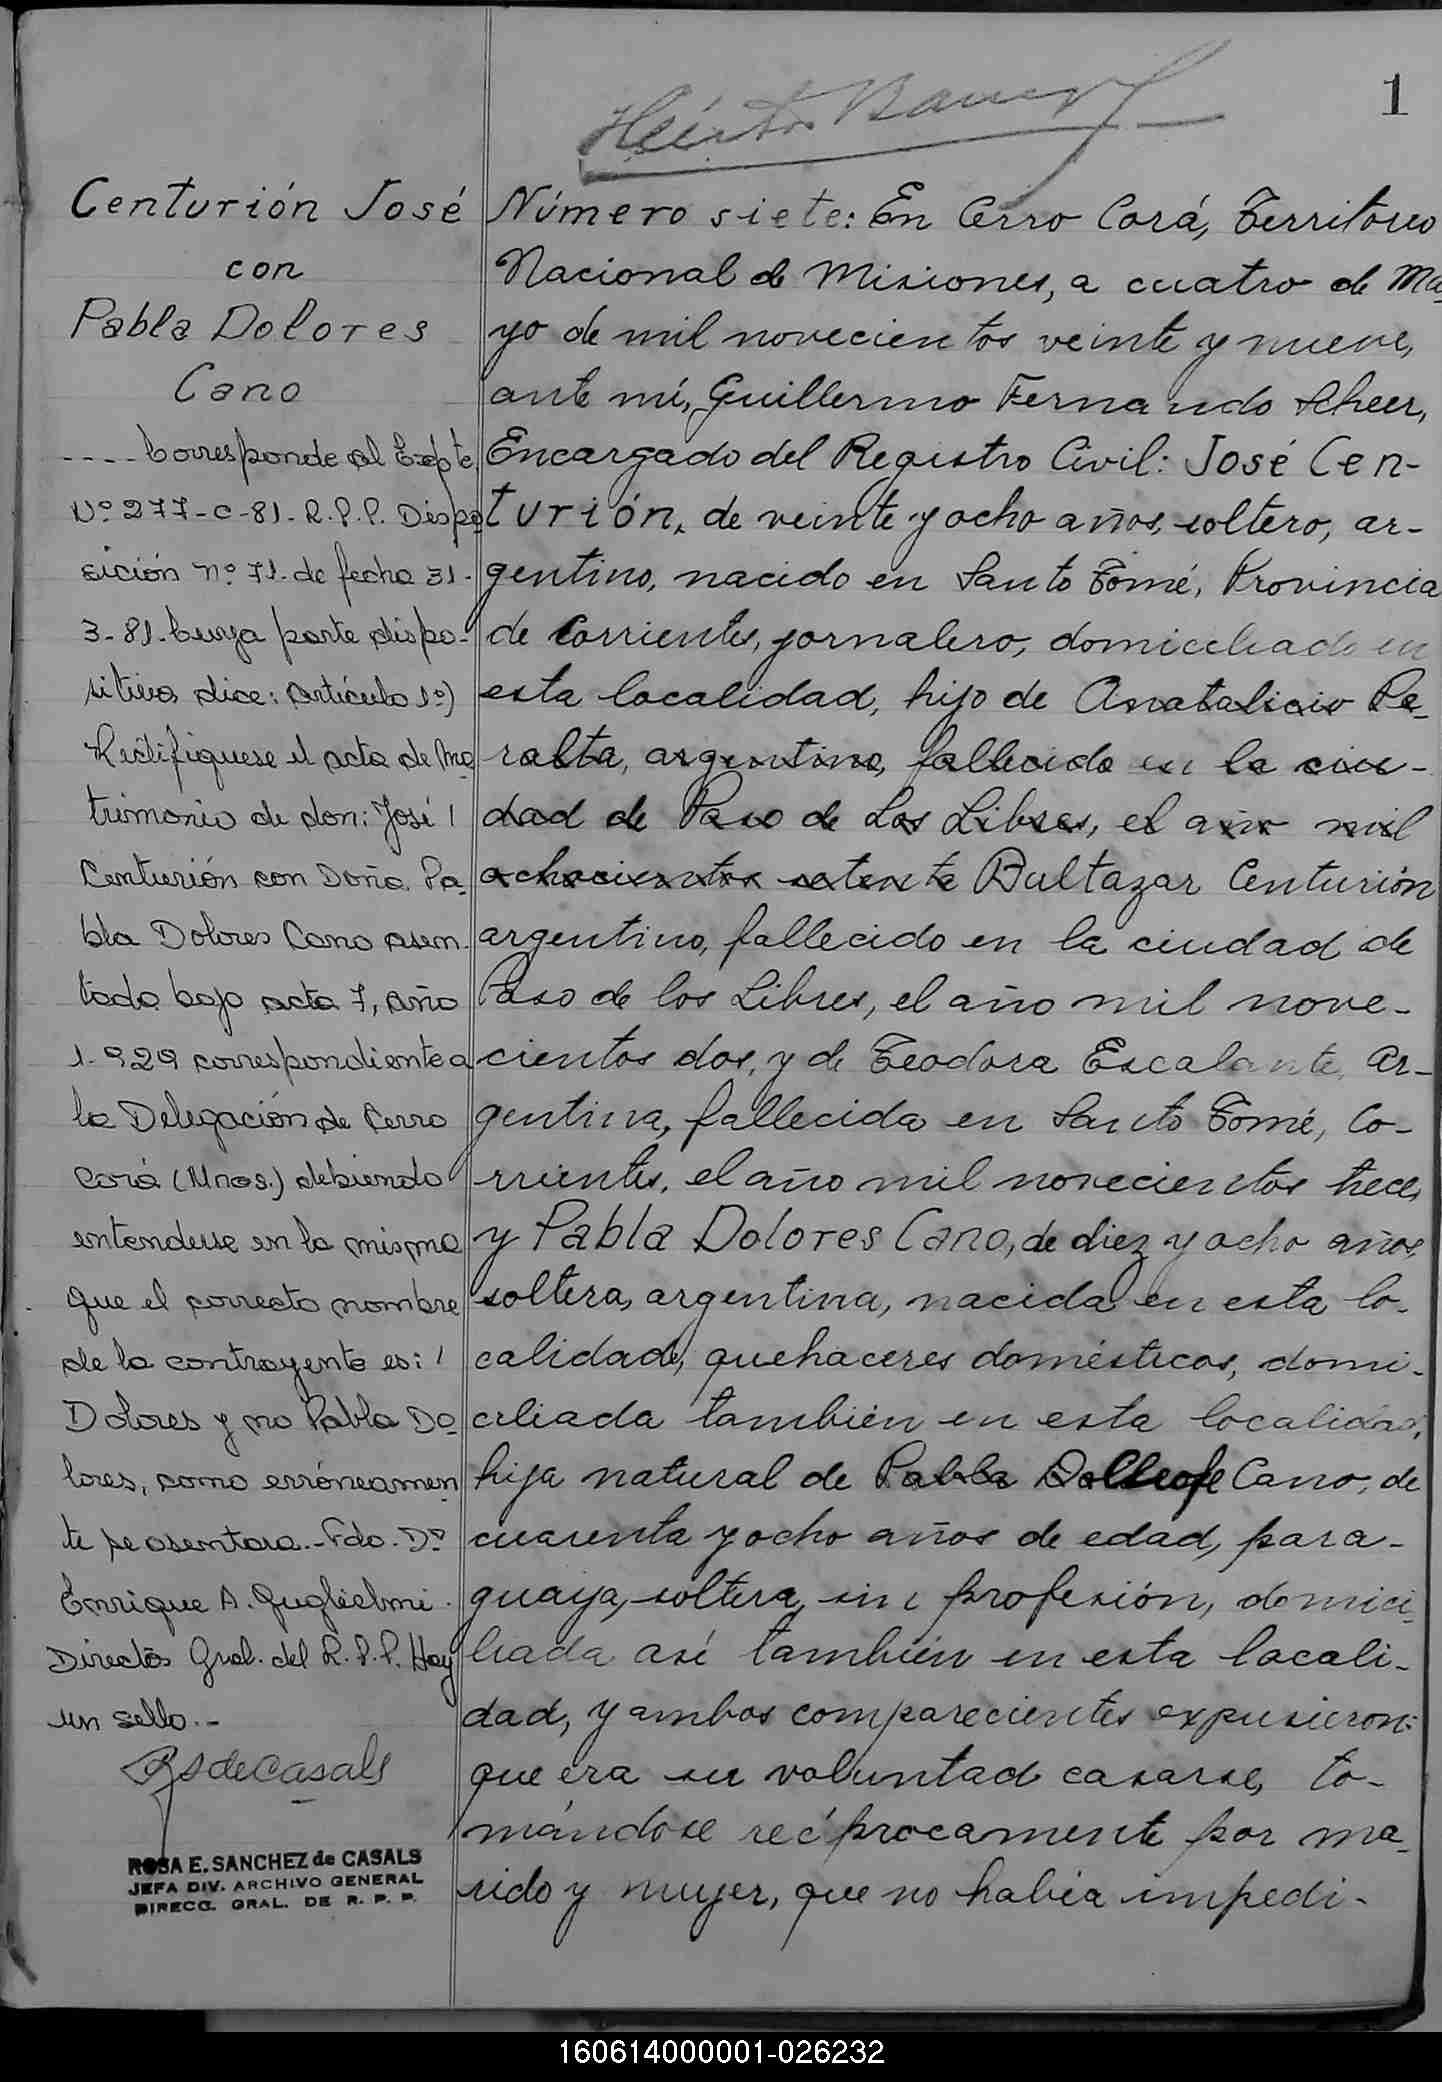 1
Centurión José
con
Pabla Dolores
Cano
---- Corresponde al Expte
Nº 277-C-81-R.P.P. Dispo
sición nº 71. de fecha 31-
3-81. cuya parte dispo-
sitiva dice: Artículo 1º)
Rectifíquese el acta de Ma
trimonio de don: José
Centurión con Doña Pa-
bla Dolores Cano asen-
tada bajo acta 7, año
1.929 correspondiente a
la Delegación de Cerro
Corá (Mnes.) debiendo
entenderse en la misma
que el correcto nombre
de la contrayente es:
Dolores y no Pabla Do
lores, como erróneamen
te se asentara.-Fdo. Dº
Enrique A. Guglielmi.
Director Gral. del R.P.P. Hay
un sello.-
RSdeCasals
ROSA E. SANCHEZ de CASALS
JEFA DIV. ARCHIVO GENERAL
DIRECC. GRAL. DE R. P. P.
Número siete: En Cerro Corá, Territorio
Nacional de Misiones, a cuatro de Ma-
yo de mil novecientos veinte y nueve,
ante mí, Guillermo Fernando Scheer,
Encargado del Registro Civil: José Cen-
turión, de veinte y ocho años, soltero, ar-
gentino, nacido en Santo Tomé, Provincia
de Corrientes, jornalero, domiciliado en
esta localidad, hijo de Anatalicio Pe-
ralta, argentino, fallecido en la ciu-
dad de Paso de Los Libres, el año mil
ochocientos setente Baltazar Centurión
argentino, fallecido en la ciudad de
Paso de los Libres, el año mil nove-
cientos dos, y de Teodora Escalante, ar-
gentina, fallecida en Santo Tomé, Co-
rrientes, el año mil novecientos trece,
y Pabla Dolores Cano, de diez y ocho años,
soltera, argentina, nacida en esta lo-
calidad, quehaceres domésticos, domi-
ciliada también en esta localidad,
hija natural de Pabla Cano, de
cuarenta y ocho años de edad, para-
guaya, soltera, sin profesión, domici-
liada así también en esta locali-
dad, y ambos comparecientes expusieron:
que era su voluntad casarse, to-
mándose recíprocamente por ma-
rido y mujer, que no había impedi-
160614000001-026232